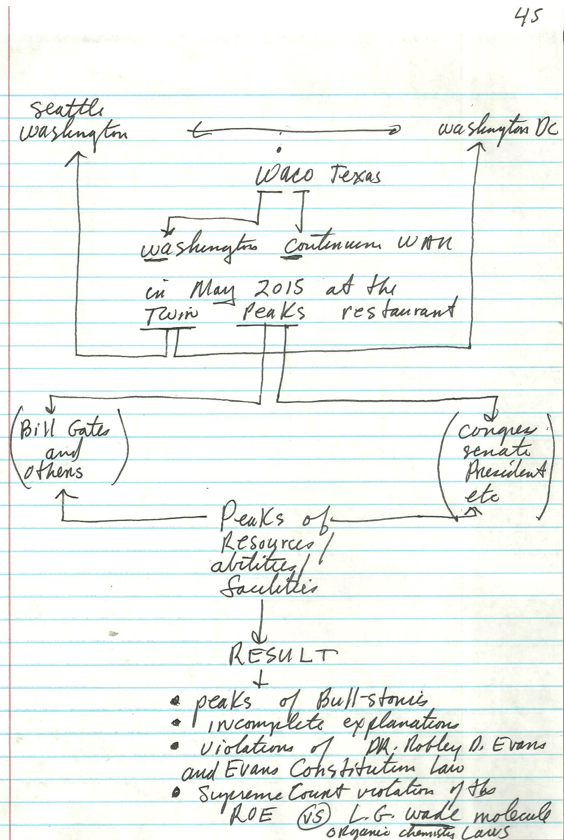 45
Seattle
Washington
Washington DC
Waco Texas
Washington Continuum WAR
in May 2015 at the
Twin Peaks restaurant
(Bill Gates
and
others)
(Congres
senate
President
etc)
Peaks of
Resources/
abilities/
facilities
RESULT
• peaks of Bull-stories
• incomplete explanations
• violations of DR. Robley D. Evans
and Evans Constitution Law
• Supreme Court violation of the
ROE VS L.G. wade molecule
organic chemistry Laws